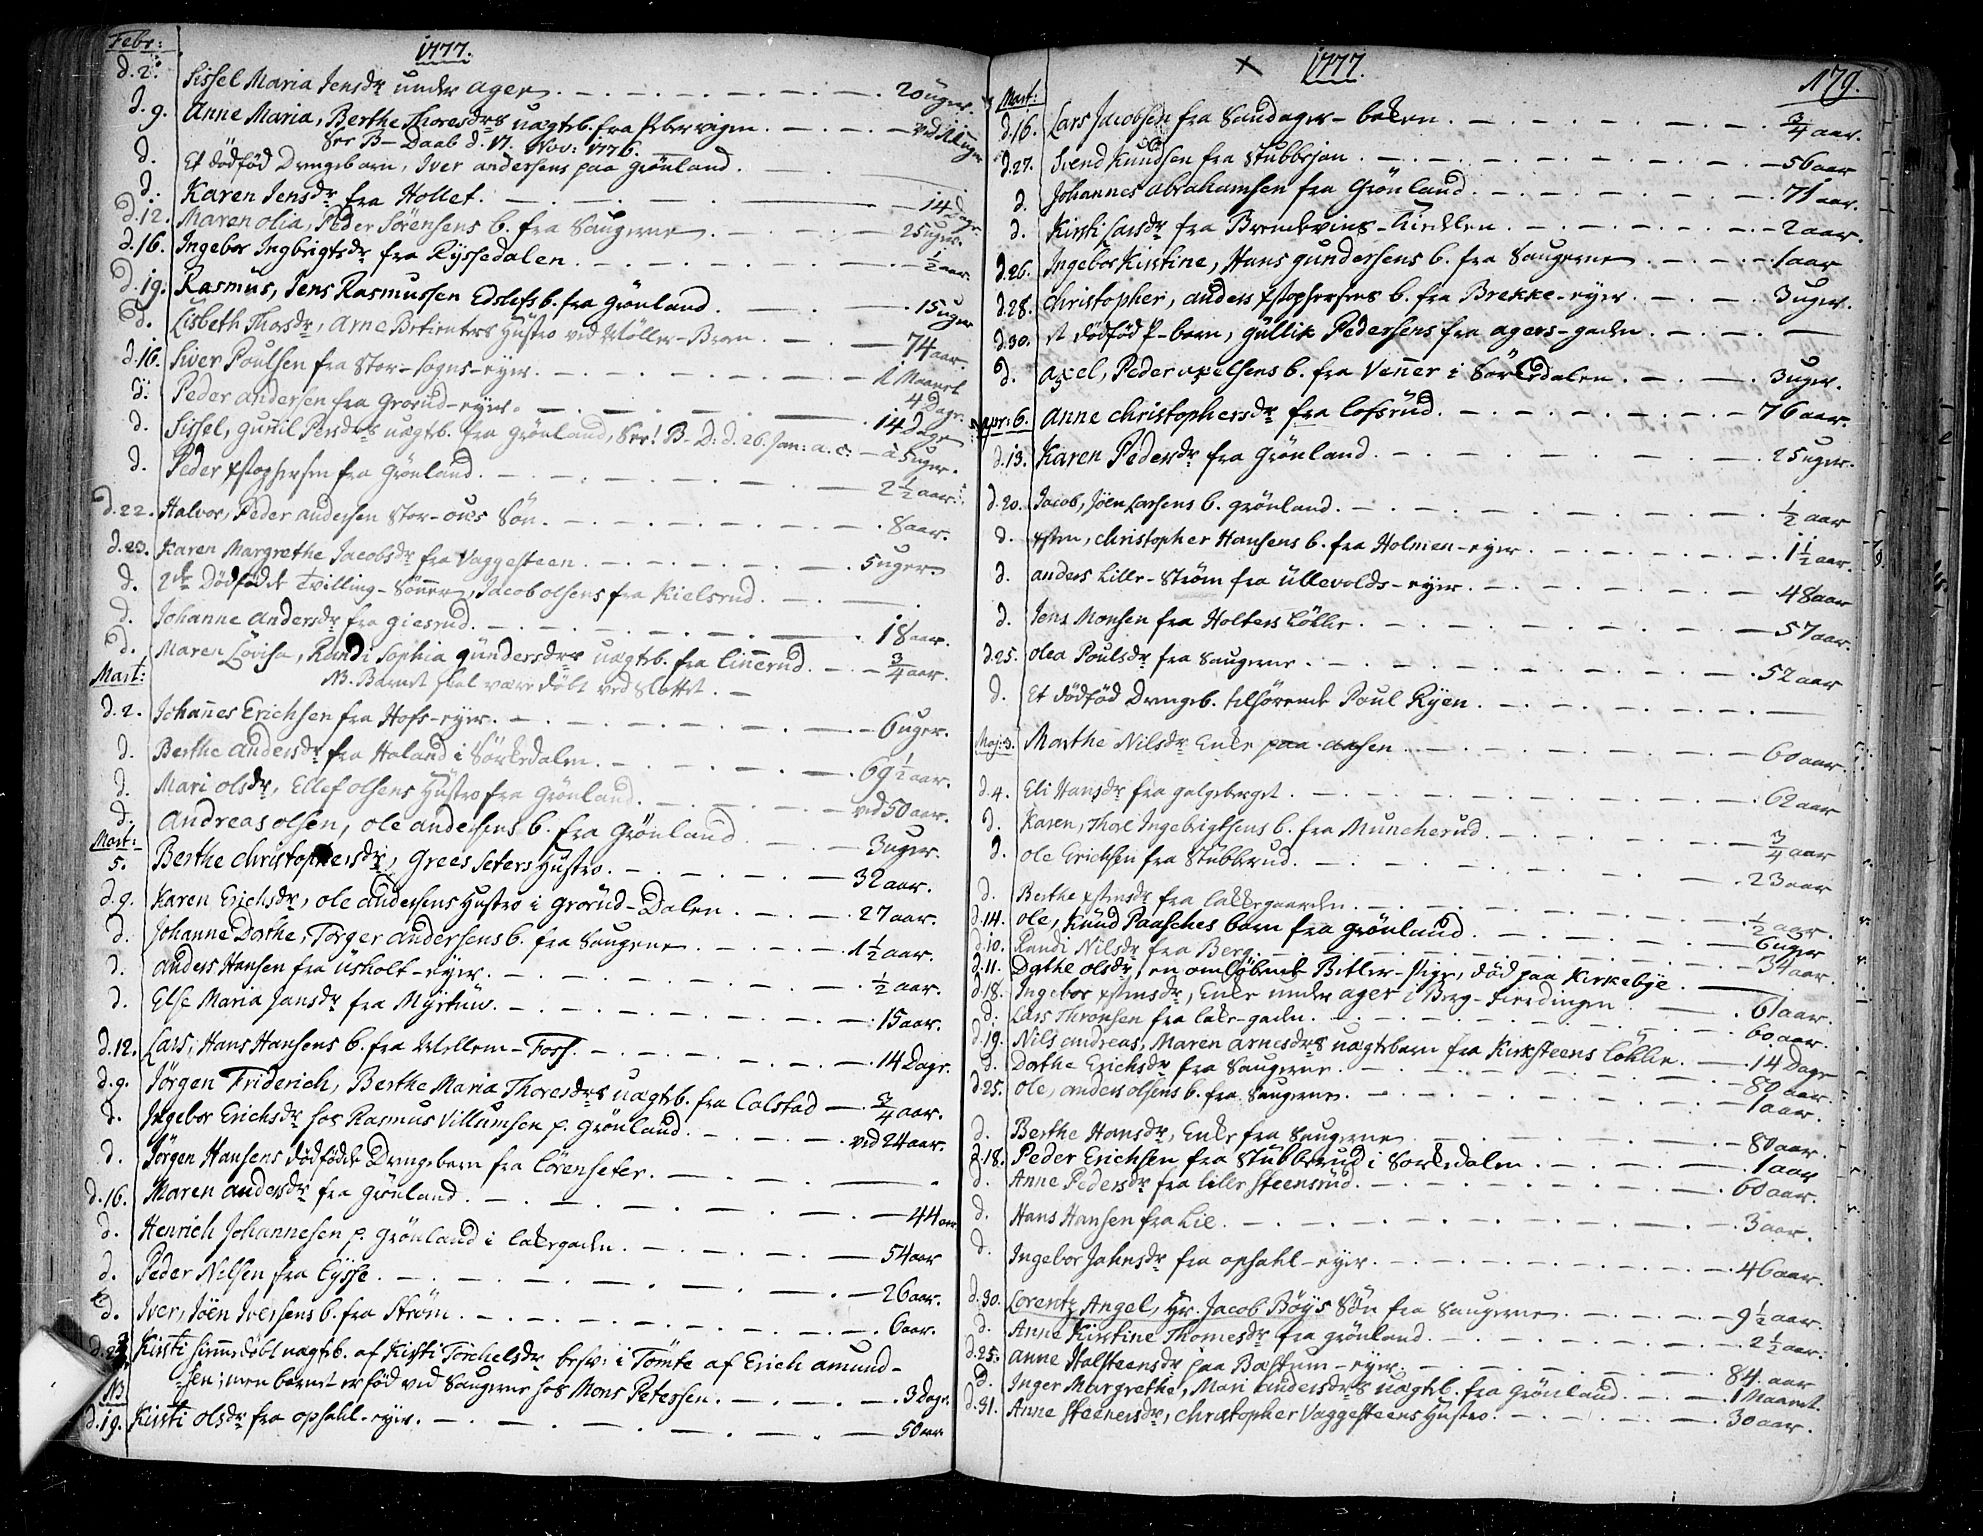 Febr: 1777.
d. 2. Sissel Maria Jensdr under ager 20 uger.
d. 9. Anne Maria, Berthe Thoresdrs uægteb. fra
See B- Daab d. 17. Nov: 1776.
d. Et dödfød Drengebarn, Iver andersens paa Grönland.
d. Karen Jensdr fra Hollet. 14 dage.
d. 12. Maren olia, Peder Sörensens b. fra Saugerne 25 uger.
d. 16. Ingebor Ingbrigtsdr fra Ryssedalen. ½ aar.
d. 19. Rasmus, Jens Rasmussen Edslefs b. fra Grönland. 15 uger
d. Lisbeth Thorsdr, Arne Betienters Hustro ved Möller-Broen. 74 aar.
d. 16. Siver Poulsen fra Stor-sogns-eyer. 1 Maanet
4 Dage.
d. Peder andersen fra Grorud-eyer. 14 Dage
d. Sissel, Gunil Persdrs uægteb. fra Grönland, See! B. D. d. 26. Jan: a. c. 5 uger.
d. Peder Xstophersen fra Grönland. 2½ aar.
d. 22. Halvor, Peder andersen Stor-ous Sön. 8 aar.
d. 23. Karen Margrethe Jacobsdr fra Vaggesteen. 5 uger.
d. 2de Dödfödde Tvilling-Sönner, Jacob olsens fra Kielsrud.
d. Johanne Andersdr fra Giesrud. 18 aar.
d. Maren Lovisa, Randi Sophia Gundersdrs uægteb. fra Linnerud. ¾ aar.
NB. Barnet skal være döbt ved Slottet.
Mart:
d. 2. Johannes Erichsen fra Hofs-eyer. 6 uger.
d. Berthe andersdr fra Haland i Sörkedalen. 69½ aar.
d. Mari olsdr, Ellef olsens Hustro fra Grönland. ved 50 aar.
d. Andreas olsen, ole andersens b. fra Grönland 3 uger.
Mart:
5. Berthe christophersdr, Grees Seters Hustro. 32 aar.
d. 9. Karen Erichsdr, ole andersens Hustro i Grorud-Dalen. 27 aar.
d. Johanne Dorthe, Torger andersens b. fra Saugene 1½ aar.
d. anders Hansen fra Üsholt-eyer. ½ aar.
d. Else Maria Jansdr fra Myrstuw. 15 aar.
d. 12. Lars, Hans Hansens b. fra Mellem-Foss. 14 Dage.
d. 9. Jörgen Friderich, Berthe Maria Thoresdrs uægteb. fra Calstad ¾ aar.
d. Ingebor Erichsdr hos Rasmus Villumsen p. Grönland. ved 24 aar.
d. Jörgen Hansens dödfödde Drengebarn fra Lörenseter.
d. 16. Maren andersdr fra Grönland. 44 aar
d. Henrich Johannesen p. Grönland i Lakegaden. 54 aar
d. Peder Nilsen fra Lysse. 26 aar.
d. Iver, Jöen Iversens b. fra Ström. 6 aar.
Kirsti hiemmedöbt uægteb. af Kirsti Torchelsdr besv: i Tomte af Erich amund-
sen; men barnet er fød ved Saugerne hos Mons Petersen. 3 dage.
NB
d. 19. Kirsti olsdr fra opsahl-eyer. 50 aar
1777. 179.
Mart:
d. 16. Lars Jacobsen fra Sandager-bakken. ¾ aar.
d. 27. Svend Knudsen fra Stubbejan. 56 aar
d. Johannes abrahamsen fra Grönland. 71 aar.
d. Kirsti Larsdr fra Brendevins-Kieldden. 2 aar.
d. 26. Ingebor Kirstine, Hans gundersens b. fra Saugerne 1 aar
d. 28. christopher, anders Xstophersens b. fra Brekke-eyer. 3 uger.
d. 30. et dödföd P-barn, Gullik Pedersens fra agers-gaden
d. Axel, Peder Axelsens b. fra Venner i Sörkedalen. 3 uger.
Apr: 6. Anne christophersdr fra Lofsrud. 76 aar.
d. 13. Karen Pedersdr fra Grönland. 25 uger.
d. 20. Jacob, Jöen Larsens b. grönland. ½ aar
d. Xsten, christopher Hansens b. fra Holmen-eyer. 1½ aar.
d. anders Lille-Ström fra Üllevolds-eyer. 48 aar
d. Jens Monsen fra Holters Lökke. 57 aar.
d. 25. olea Poulsdr fra Saugerne. 52 aar
d. Et dödföd Drengeb. tilhörende Poul Ryen.
Maj: 3. Marthe Nilsdr Enke paa aasen. 60 aar.
d. 4. Eli Hansdr fra galgeberget. 62 aar
d. Karen, Thore Ingebrigthsens b. fra Muncherud. ¾ aar
d. ole Erichsen fra Stubberud. 23 aar
d. Berthe Xstensdr fra Lakkegaarden. ½ aar.
d. 14. ole, Knüd Paasches barn fra Grönland. 6 uger
d. 10. Randi Nilsdr fra Berg. 34 aar.
d. 11. Dorthe olsdr, en omlöbende Betler-Pige, död paa Kirkebye.
d. 18. Ingebor Xstensdr, Enke under ager i Berg-fierdingen 61 aar.
d. Lars Thronsen fra Lake-gaden. 60 aar.
d. 19. Nils andreas, Maren Arnesdrs uægtebarn fra Kirksteens Lökke. 14 Dage
d. Dorthe Erichsdr fra Saugerne. 80 aar.
d. 25. ole, anders olsens b. fra Saugerne. 1 aar.
d. Berthe Hansdr, Enke fra Saugerne 80 aar.
d. 18. Peder Erichsen fra Stubberud i Sorkedalen. 1 aar
d. Anne Pedersdr fra Lille Steensrud. 60 aar.
d. Hans Hansen fra Lie. 3 aar.
d. Ingebor Jahnsdr fra opsahl-eyer. 46 aar.
d. 30. Lorentz Angel, Hr. Jacob Böys Sön fra Saugerne 9½ aar.
d. Anne Kirstine Thomesdr fra Grönland. 2½ aar.
d. 25. anne Halsteensdr paa Bastum-eyer. 84. aar
d. Inger Margrethe, Mari andersdrs uægteb. fra Grönland. 1 Maanet.
d. 31. Anne Steenersdr, christopher Vaggesteens Hustro. 30 aar.